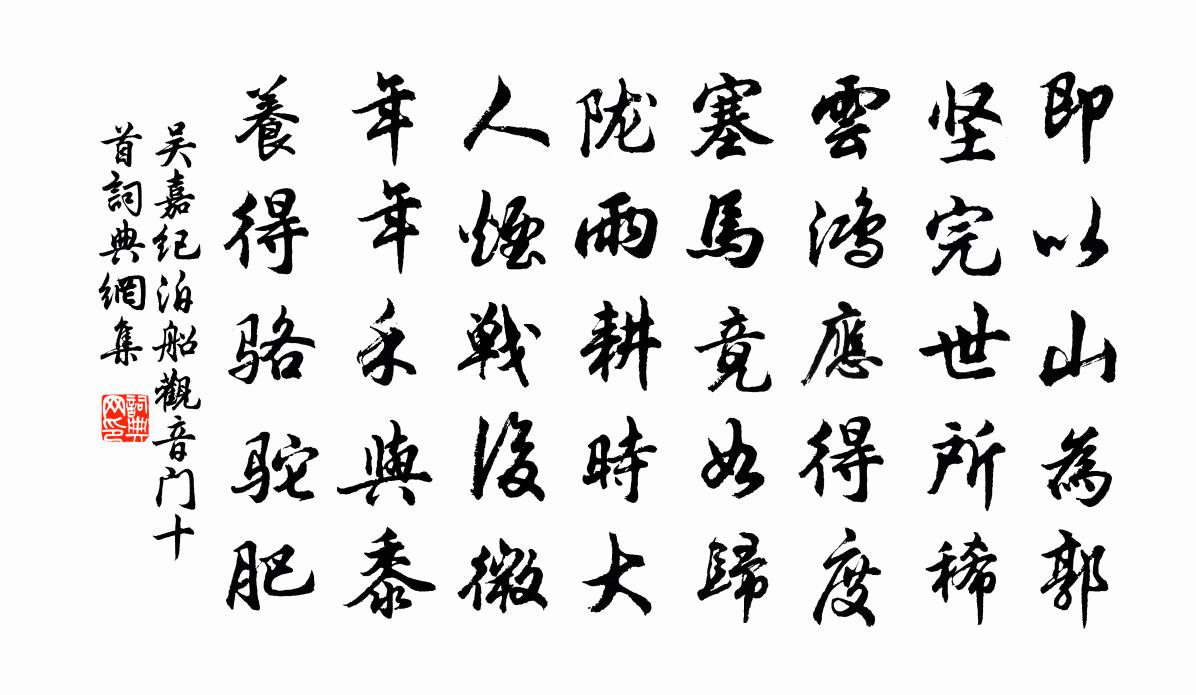 即以山為郭
坚完世所稀
雲鸿應得度
塞馬竟如歸
陇雨耕時大
人煙戰後微
年年禾與黍
養得骆駝肥
吴嘉纪泊船觀音门十
首詞典網集
詞典
网印